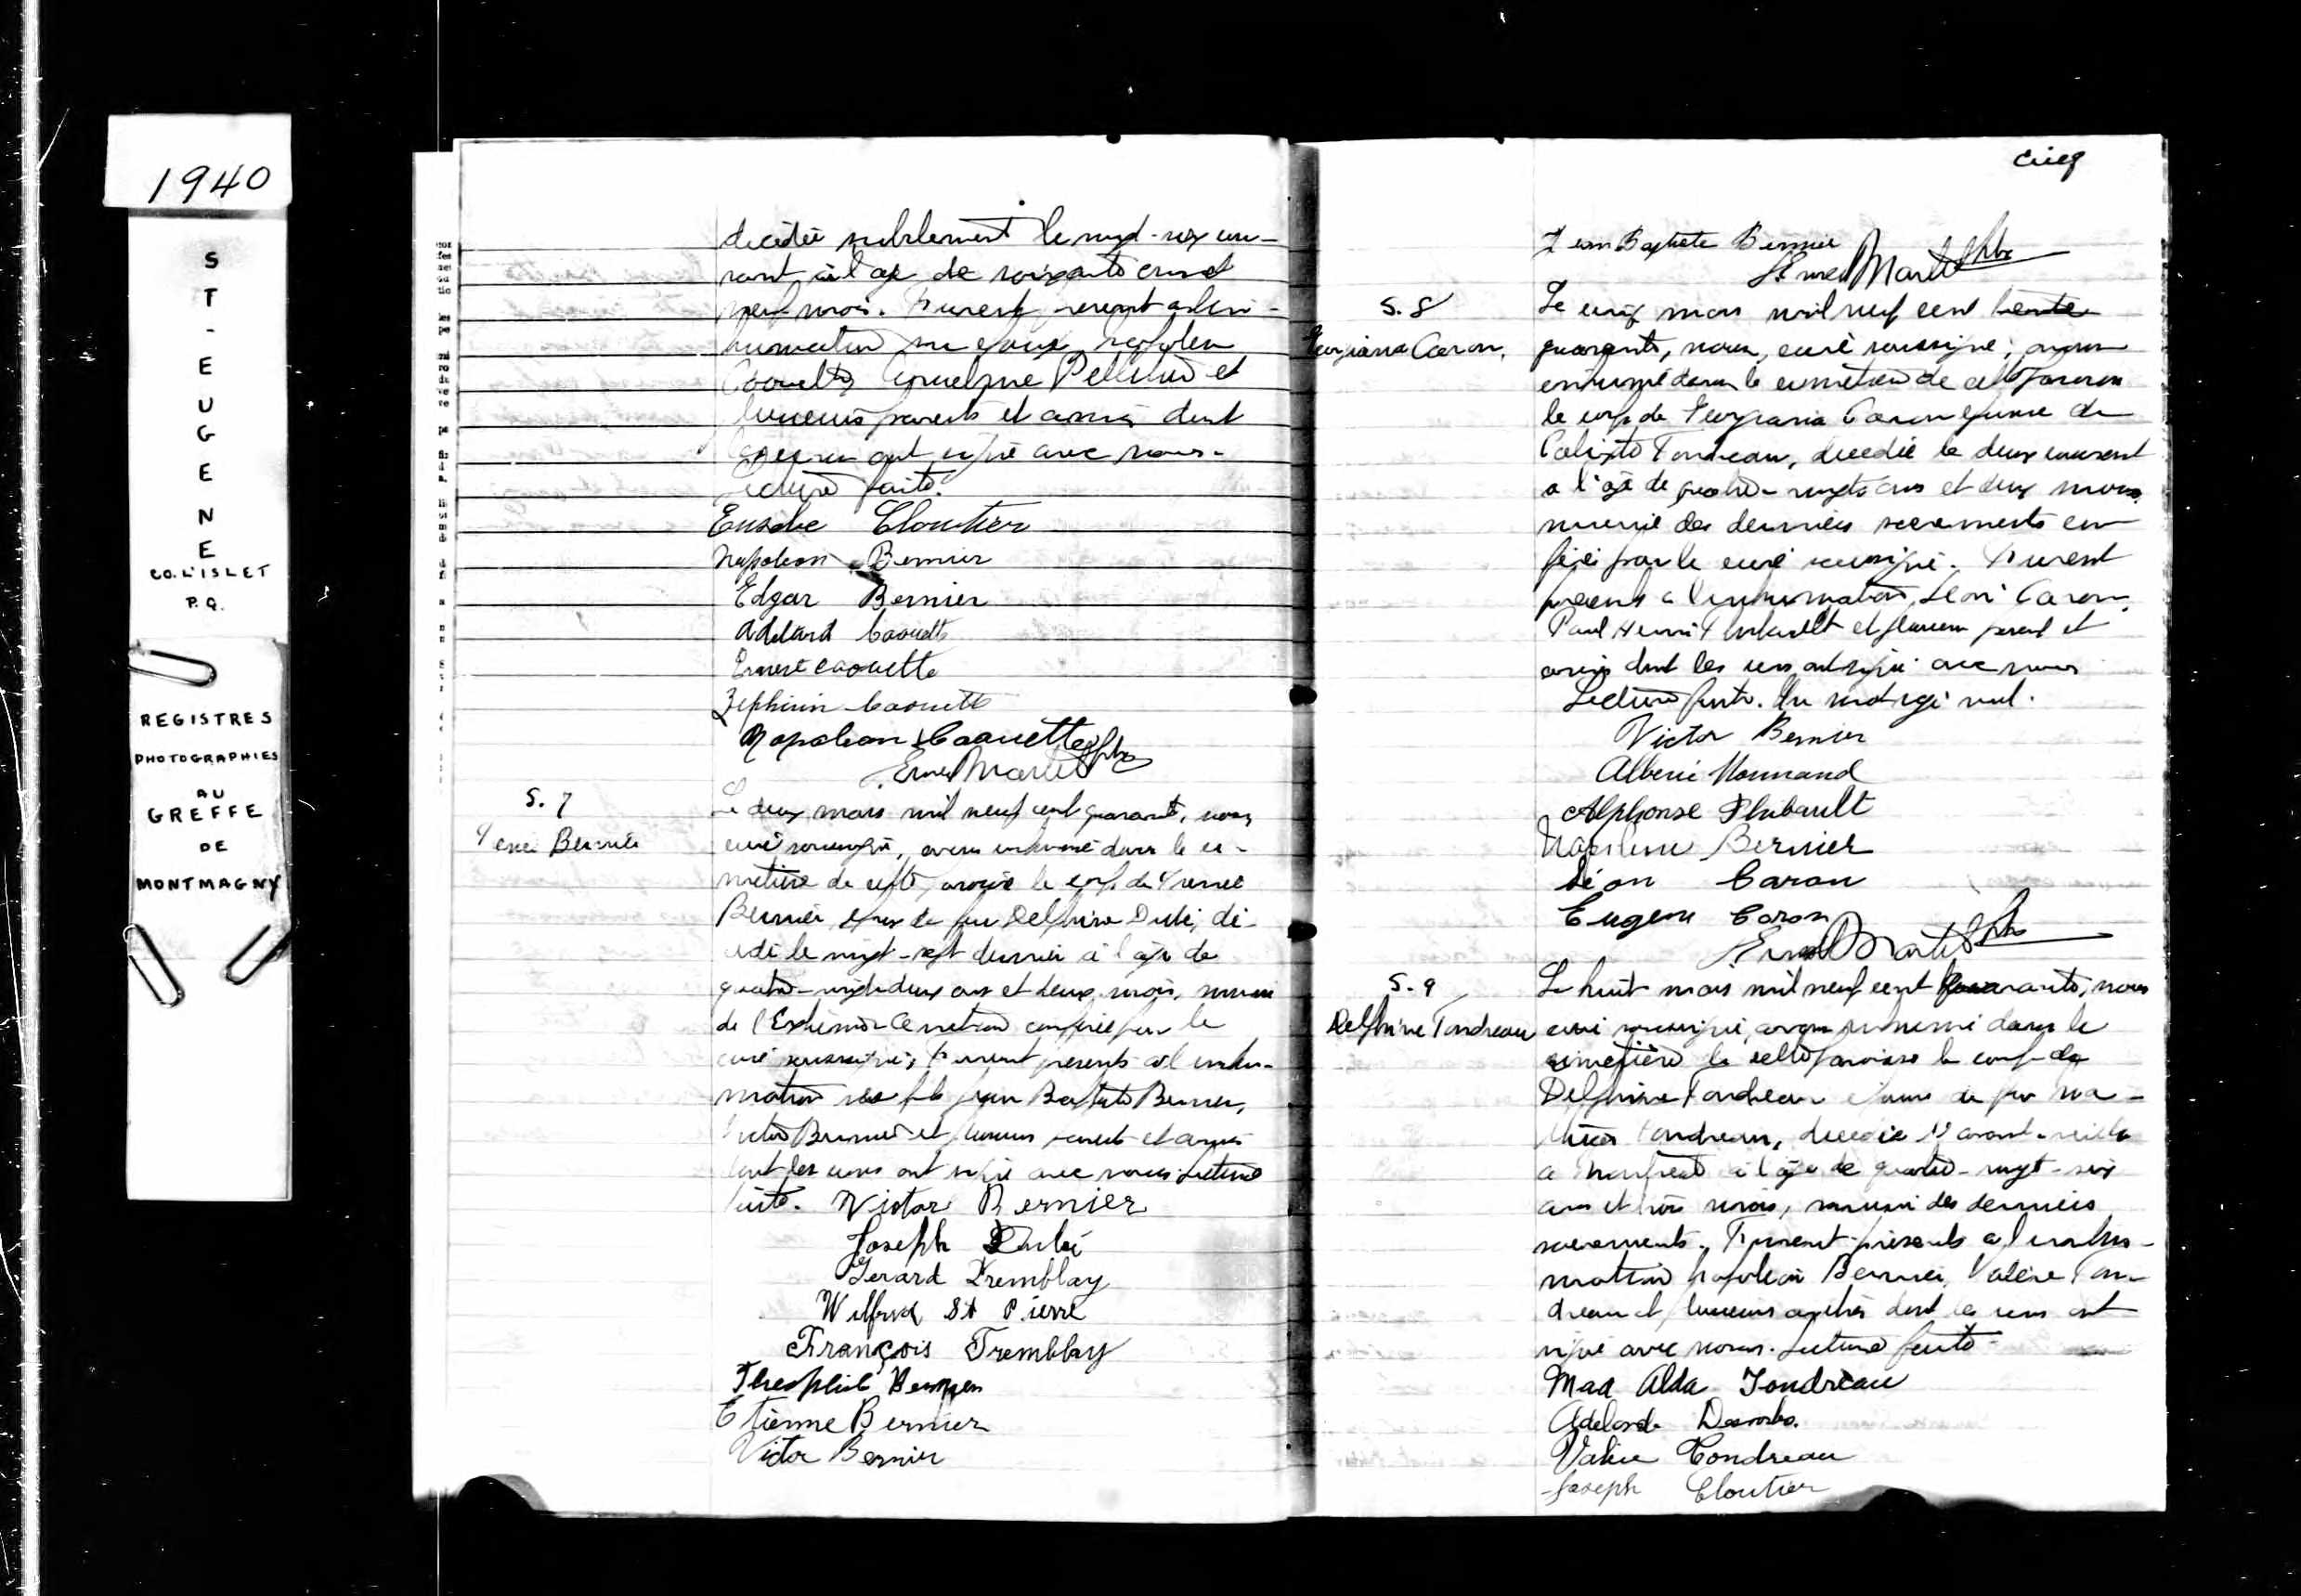 1940
S
T
-
E
U
G
E
N
E
CO. L'ISLET
P.Q.
REGISTRES
PHOTOGRAPHIES
AU
GREFFE
DE
MONTMAGNY
décédée subitement le vingt-six cou-
rant à l'age de soixante ans et
neuf mois. Furent present a l'in-
humation son epoux Napoleon
Caouette et
plusieurs parents et amis dont
ont signé avec nous.
Lecture faite.
Eusebe Cloutier
Napoleon Bernier
Edgar Bernier
Adelard Caouette
Ernest Caouette
Zephirin Caouette
Napoleon Caouette
Ernest Martel Ptre
S. 7
Bernier
Le deux mars mil neuf cent quarante, nous
curé soussigné, avons inhumé dans le ci-
metière de cette paroisse le corps de
Bernier, epoux de feu Delphine Dubé, dé-
cédé le vingt-sept dernier à l'age de
quatre-vingt-deux ans et deux mois, muni
de l'Extrême-Onction conferée par le
curé soussigné; furent presents à l'inhu-
mation ses fils Jean Baptiste Bernier,
Victor Bernier et plusieurs parents et amis
dont les uns ont signé avec nous Lecture
faite. Victor Bernier
Joseph Dubé
Gerard Tremblay
Wilfrid St Pierre
François Tremblay
Theophile Bernier
Etienne Bernier
Victor Bernier
cinq
Jean Baptiste Bernier
Ernest Martel Ptre
S. 8
Georgiana Caron,
Le cinq mars mil neuf cent trente
quarante, nous, curé soussigné, avons
inhumé dans le cimetière de cette paroisse
le corps de Georgiana Caron epouse de
Calixte Tondreau, decedée le deux courant
a l'age de quatre-vingts ans et deux mois
munie des derniers sacrements con-
férés par le curé soussigné. Furent
présents a l'inhumation, Léon Caron,
Paul Henri Thibault et plusieurs parents et
amis dont les uns ont signé avec nous
Lecture faite. Un mot rayé nul.
Victor Bernier
Alberic Normand
Alphonse Thibault
Bernier
Léon Caron
Eugene Caron
Ernest Martel Ptre
S. 9
Delphine Tondreau
Le huit mars mil neuf cent quarante, nous
curé soussigné, avons inhumé dans le
cimetière de cette paroisse le corps de
Delphine Tondreau epouse de feu Ma-
Tondreau, decedée avant-veille
a Montreal à l'age de quatre-vingt-six
ans et trois mois, munie des derniers
sacrements. Furent présents a l'inhu-
mation Napoleon Bernier, Valère Ton-
dreau et plusieurs autres dont les uns ont
signé avec nous. Lecture faite.
Mad Alda Tondreau
Adelard
Valère Tondreau
Joseph Cloutier